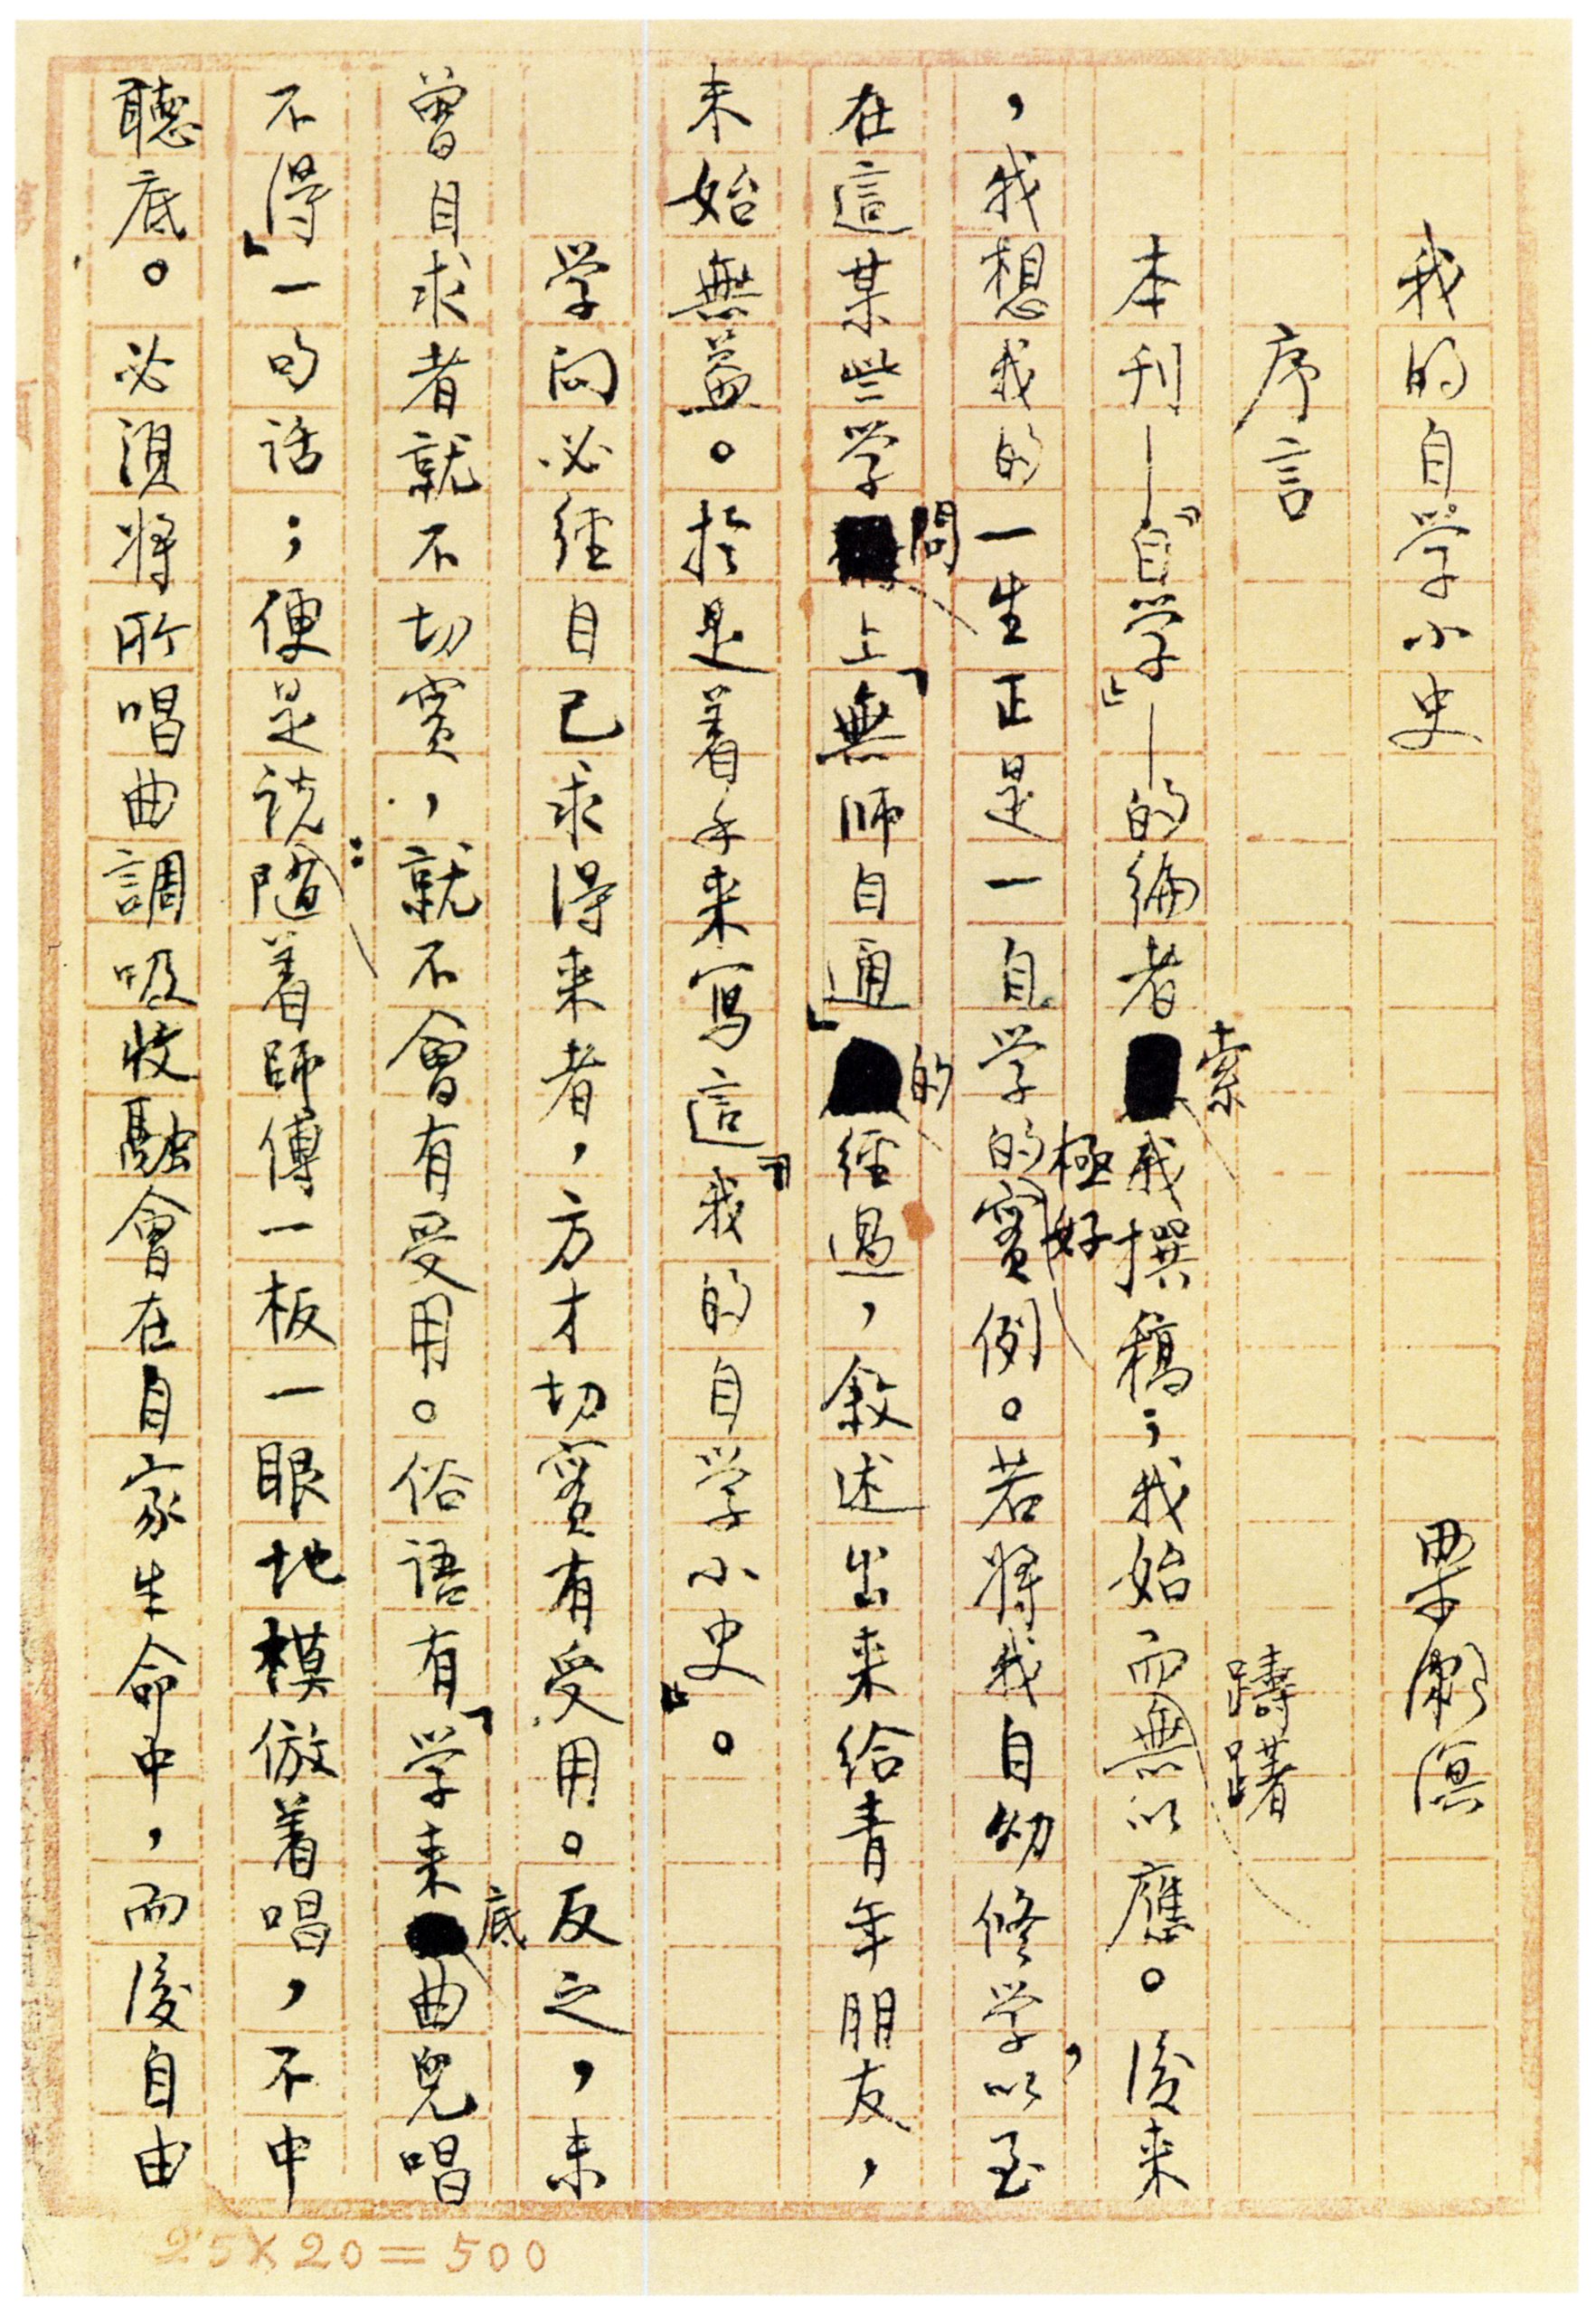 我的自学小史　梁漱溟
序言
本刊——『自学』——的編者索我撰稿；我始而躊躇無以應。後来
，我想我的一生正是一自学的極好實例。若將我自幼修学，以至
在這某些学問上「無師自通」的經過，叙述出来给青年朋友，
未始無益。於是着手来寫這『我的自学小史』。
学问必經自己求得来者，方才切實有受用。反之，未
曾自求者就不切實，就不會有受用。俗語有「学来底曲兒唱
不得」一句話；便是说：隨着師傅一板一眼地模倣着唱，不中
聽底。必須將所唱曲調吸收融會在自家生命中，而後自由
25×20=500